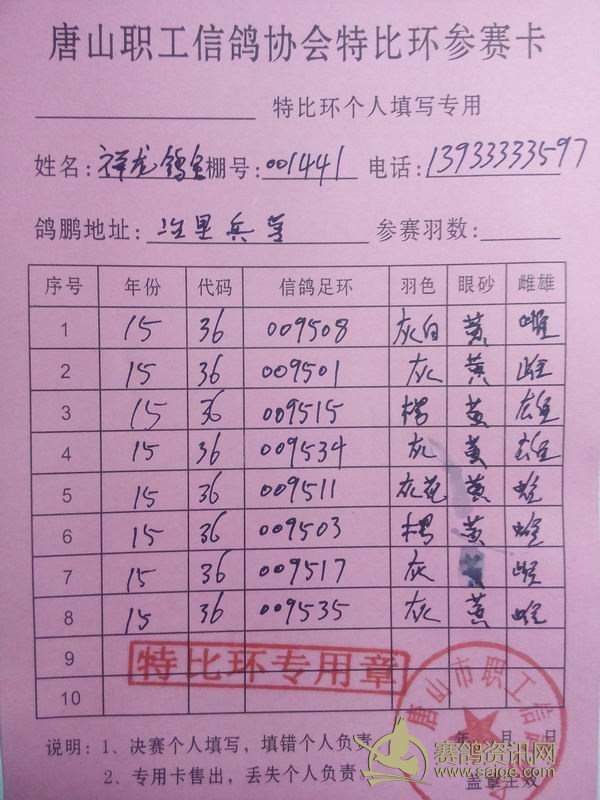 唐山职工信鸽协会特比环参赛卡
特比环个人填写专用
姓名: 祥龙鸽舍 棚号: 001441 电话: 13933333597
鸽鹏地址: 冶里兵营 参赛羽数:
序号 年份 代码 信鸽足环 羽色 眼砂 雌雄
1 15 36 009508 灰白 黄 雌
2 15 36 009501 灰 黄 雌
3 15 36 009515 楞 黄 雄
4 15 36 009534 灰 黄 雄
5 15 36 009511 灰花 黄 雌
6 15 36 009503 楞 黄 雌
7 15 36 009517 灰 雌
8 15 36 009535 灰 黄 雌
9
10
特比环专用章
唐山市职工信鸽
年 月 日
说明: 1、决赛个人填写，填错个人负责
2、专用卡售出，丢失个人负责
盖章生效
赛鸽资讯网
www.saige.com